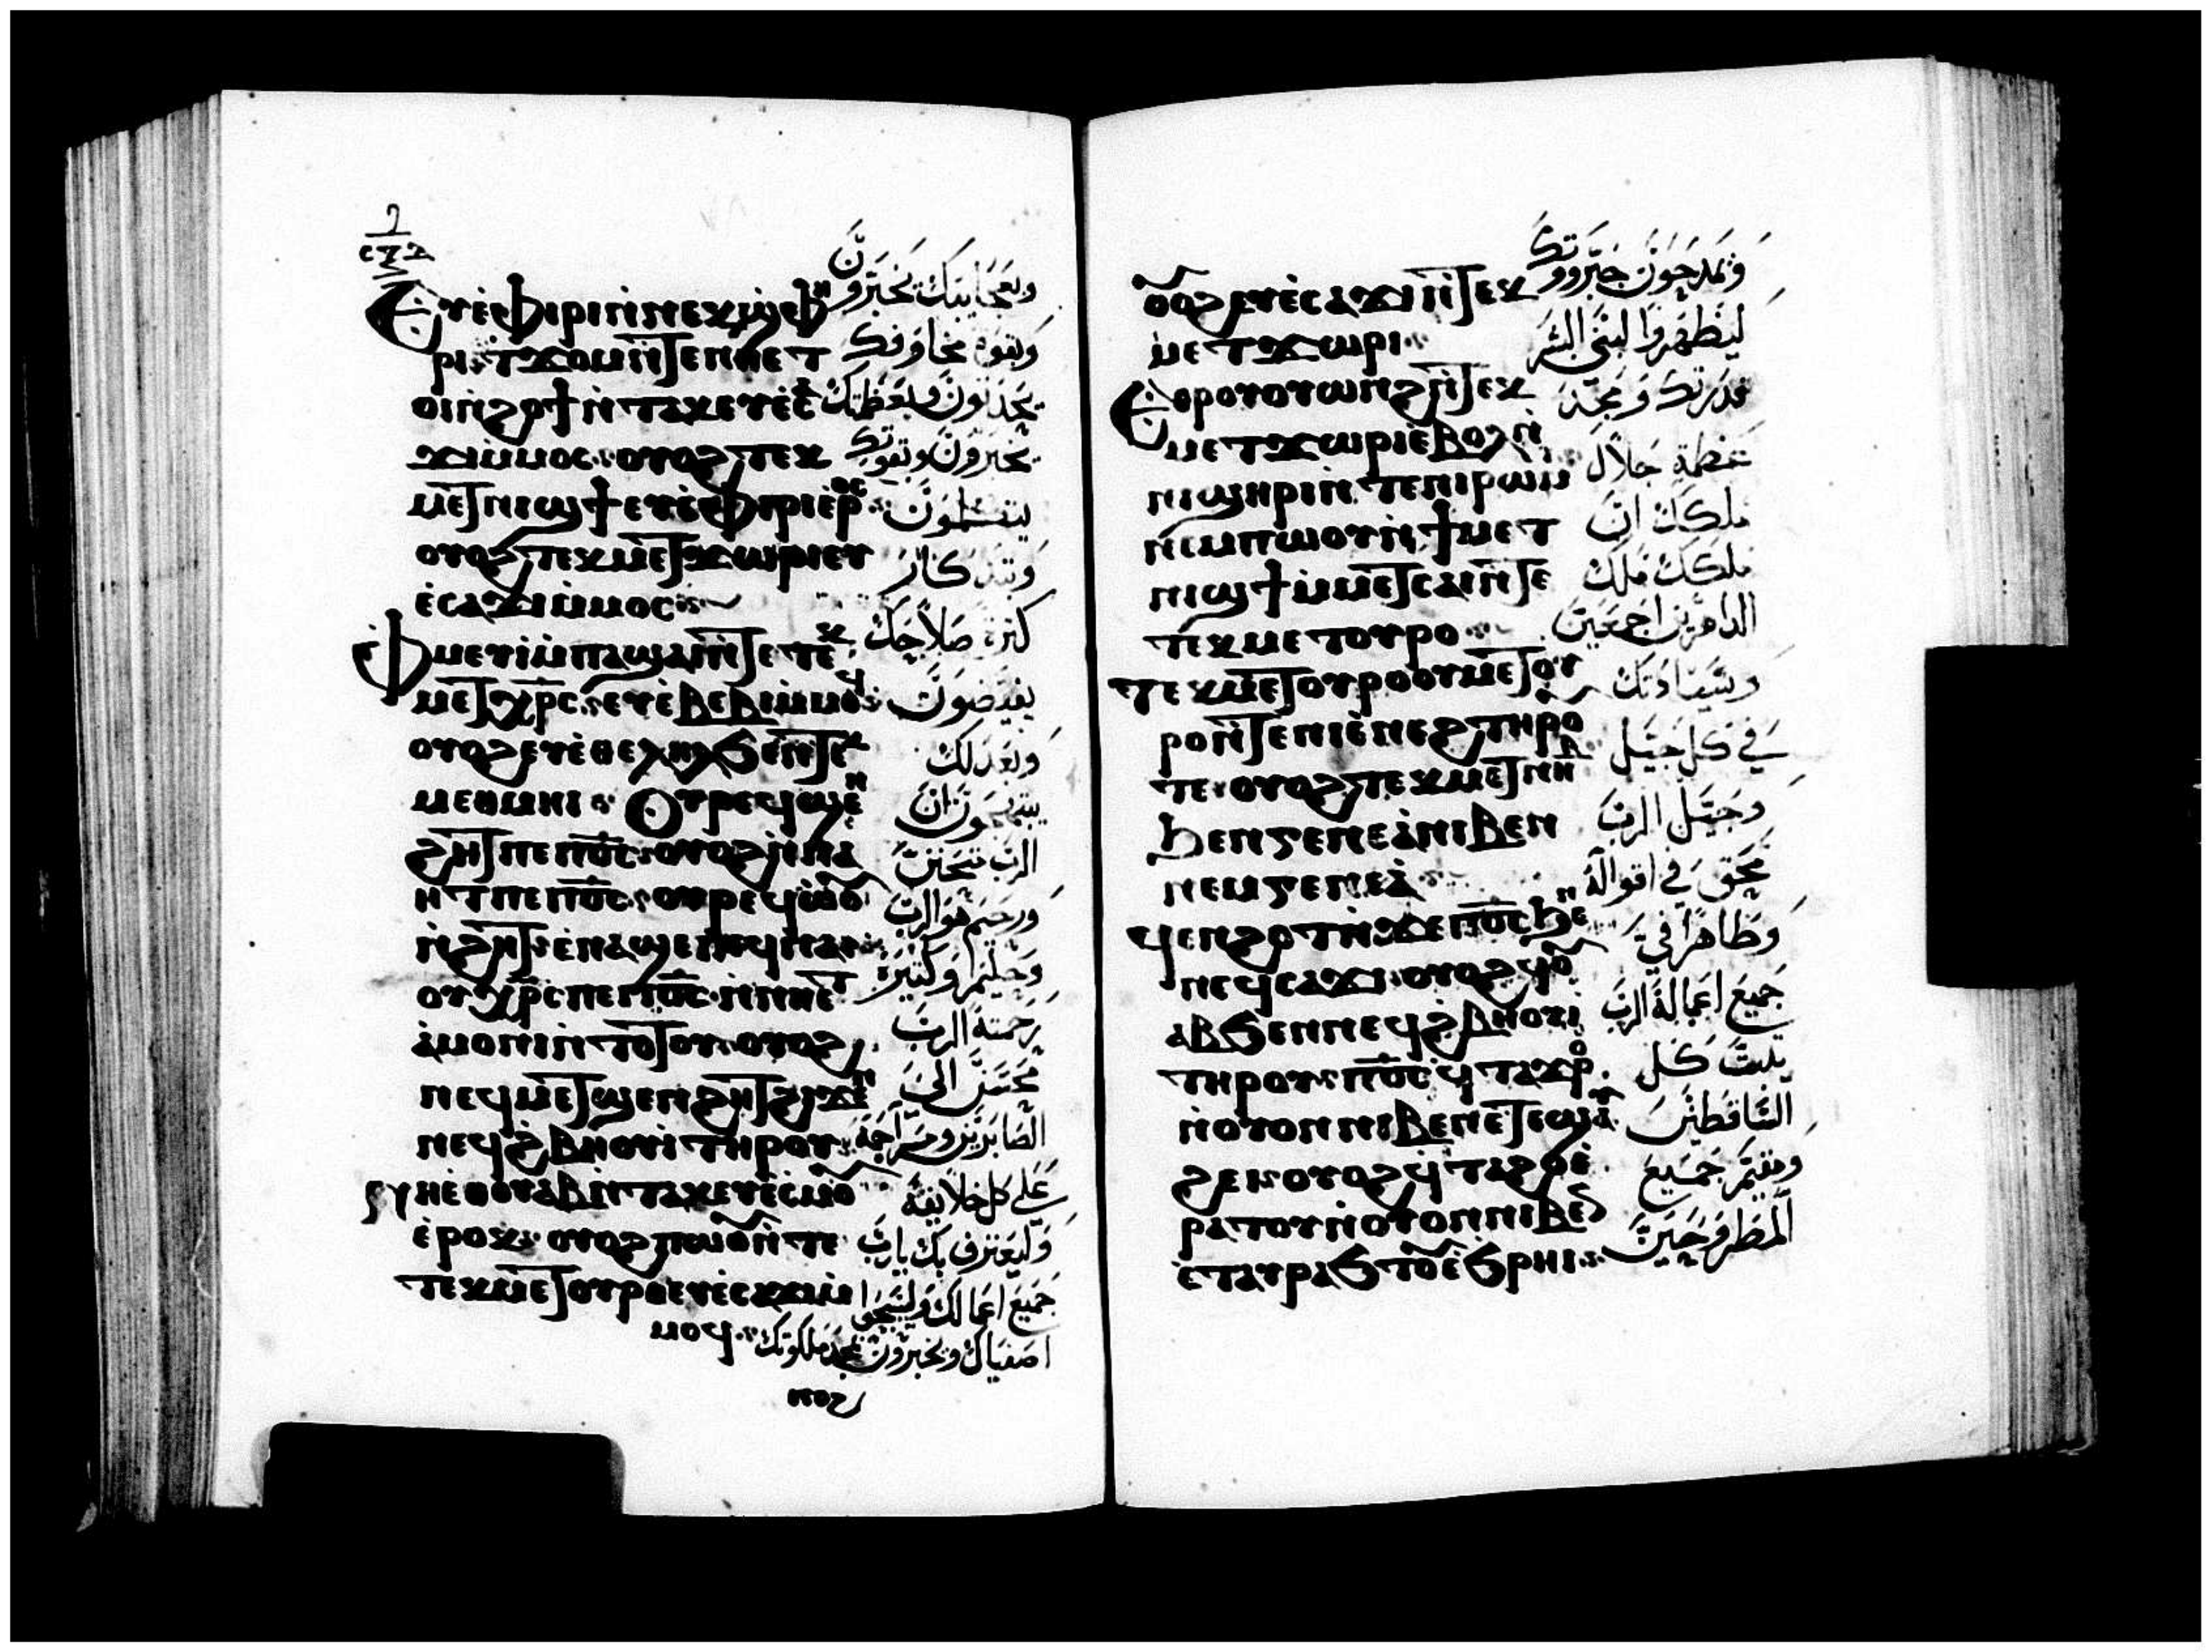 Ⲉⲩⲉ̀ⲫⲓⲣⲓ ⲛ̀ⲛⲉⲕϣ̀ⲫⲏ
ⲣⲓ ⲧϫⲟⲙ ⲛ̀ⲧⲉ ⲛⲏⲉⲧ
ⲟⲓ ⲛ̀ϩⲟϯ ⲛ̀ⲧⲁⲕ ⲉⲩⲉ̀ⲥⲁ
ϫⲓ ⲙ̀ⲙⲟⲥ ⲟⲩⲟϩ ⲧⲉⲕ
ⲙⲉⲧⲛⲓϣϯ ⲉⲩⲉ̀ⲫⲓⲣⲓ ⲉ̀ⲣⲟⲥ
ⲟⲩⲟϩ ⲧⲉⲕⲙⲉⲧϫⲱⲣⲓ ⲉⲩ
ⲉ̀ⲥⲁϫⲓ ⲙ̀ⲙⲟⲥ
Ⲫ̀ⲙⲉⲩⲓ ⲙ̀ⲡⲁϣⲁⲓ ⲛ̀ⲧⲉ ⲧⲉⲕ
ⲙⲉⲧⲭ̅ⲣ̅ⲥ ⲉⲩⲉ̀ⲃⲉⲃⲓ ⲙ̀ⲙⲟϥ
ⲟⲩⲟϩ ⲉⲩⲉ̀ⲑⲉⲗⲏⲗ ϧⲉⲛ ⲧⲉⲕ
ⲙⲉⲑⲙⲏⲓ Ⲟⲩⲣⲉϥϣⲉⲛ
ϩⲏⲧ ⲡⲉ ⲡ̅ⲟ̅ⲥ ⲟⲩⲟϩ ⲛ̀ⲛⲁ
ⲏⲧ ⲡⲉ ⲡ̅ⲟ̅ⲥ ⲟⲩⲣⲉϥⲱⲟⲩ
ⲛ̀ϩⲏⲧ ⲉ̀ⲛⲁϣⲉ ⲡⲉϥⲛⲁⲓ
ⲟⲩⲭ̅ⲣ̅ⲥ ⲡⲉ ⲡ̅ⲟ̅ⲥ ⲛ̀ⲛⲏⲉⲧ
ⲁ̀ⲙⲟⲛⲓ ⲛ̀ⲧⲟⲧⲟⲩ ⲟⲩⲟϩ
ⲛⲉϥⲙⲉⲧϣⲉⲛϩⲏⲧ ϩⲓϫⲉⲛ
ⲛⲉϥϩ̀ⲃⲏⲟⲩⲓ ⲧⲏⲣⲟⲩ
ⲛⲏⲉ̀ⲑⲟⲩⲁⲃ ⲛ̀ⲧⲁⲕ ⲉⲩⲉ̀ⲥⲙⲟⲩ
ⲉ̀ⲣⲟⲕ ⲟⲩⲟϩ ⲡⲱⲟⲩ ⲛ̀ⲧⲉ
ⲧⲉⲕⲙⲉⲧⲟⲩⲣⲟ ⲉⲩⲉ̀ⲥⲁϫⲓ ⲙ̀
ⲙⲟϥ
وبعجايبك يخبرون
وبقوة مخاوفك
يحدثون وبعظمتك
يخبرون وبقوتك
يتكلمون
وتذكار
كثرة صلاحك
يفيضون
وبعدلك
يبتهجون ان
الرب متحنن
ورحيم هو الرب
وحليما وكثيرة
رحمته الرب
الصابرين ومراحمه
على كل خلايقه
وليعترف بك يارب
جميع اعمالك وليسبحوا
اصفياك ويخبرون بمجد ملكوتك
ⲟⲩⲟϩ ⲉⲩⲉ̀ⲥⲁϫⲓ ⲛ̀ⲧⲉⲕ
ⲙⲉⲧϫⲱⲣⲓ
Ⲉ̀ⲑⲣⲟⲩⲟⲩⲱⲛϩ ⲛ̀ⲧⲉⲕ
ⲙⲉⲧϫⲱⲣⲓ ⲉ̀ⲃⲟⲗ ⲛ̀
ⲛⲓϣⲏⲣⲓ ⲛ̀ⲧⲉ ⲛⲓⲣⲱⲙⲓ
ⲛⲉⲙ ⲡⲱⲟⲩ ⲛ̀ϯⲙⲉⲧ
ⲛⲓϣϯ ⲙ̀ⲙⲉⲧⲥⲁⲓⲉ̀ ⲛ̀ⲧⲉ
ⲧⲉⲕⲙⲉⲧⲟⲩⲣⲟ
ⲧⲉⲕⲙⲉⲧⲟⲩⲣⲟ ⲟⲩⲙⲉⲧⲟⲩ
ⲣⲟ ⲛ̀ⲧⲉ ⲛⲓⲉ̀ⲛⲉϩ ⲧⲏⲣⲟⲩ
ⲧⲉ ⲟⲩⲟϩ ⲧⲉⲕⲙⲉⲧⲛⲏⲃ
ϧⲉⲛ ⲅⲉⲛⲉⲁ̀ ⲛⲓⲃⲉⲛ
ⲛⲉⲙ ⲅⲉⲛⲉⲁ̀
ϥ̀ⲉⲛϩⲟⲧ ⲛ̀ϫⲉ ⲡ̅ⲟ̅ⲥ ϧⲉⲛ
ⲛⲉϥⲥⲁϫⲓ ⲟⲩⲟϩ ϥⲟⲩ
ⲁⲃ ϧⲉⲛ ⲛⲉϥϩ̀ⲃⲏⲟⲩⲓ̀
ⲧⲏⲣⲟⲩ ⲡ̅ⲟ̅ⲥ ϥ̀ⲧⲁϫⲣⲟ
ⲛ̀ⲟⲩⲟⲛ ⲛⲓⲃⲉⲛ ⲉ̀ⲧⲉϣⲁⲩ
ϩⲉⲓ ⲟⲩⲟϩ ϥ̀ⲧⲁϩⲟ ⲉ̀
ⲣⲁⲧⲟⲩ ⲛ̀ⲟⲩⲟⲛ ⲛⲓⲃⲉⲛ
ⲉ̀ⲧⲁⲩⲣⲁϧⲧⲟⲩ ⲉ̀ϧⲣⲏⲓ
ويمدحون جبروتك
ليظهروا لبنى البشر
قدرتك ومجد
عظمة جلال
ملكك ان
ملكك ملك
الداهرين اجمعين
وسيادتك
في كل جيل
وجيل الرب
محق في اقواله
وطاهرا في
جميع اعماله الرب
يثبت كل
الساقطين
ومقيم جميع
المطروحين